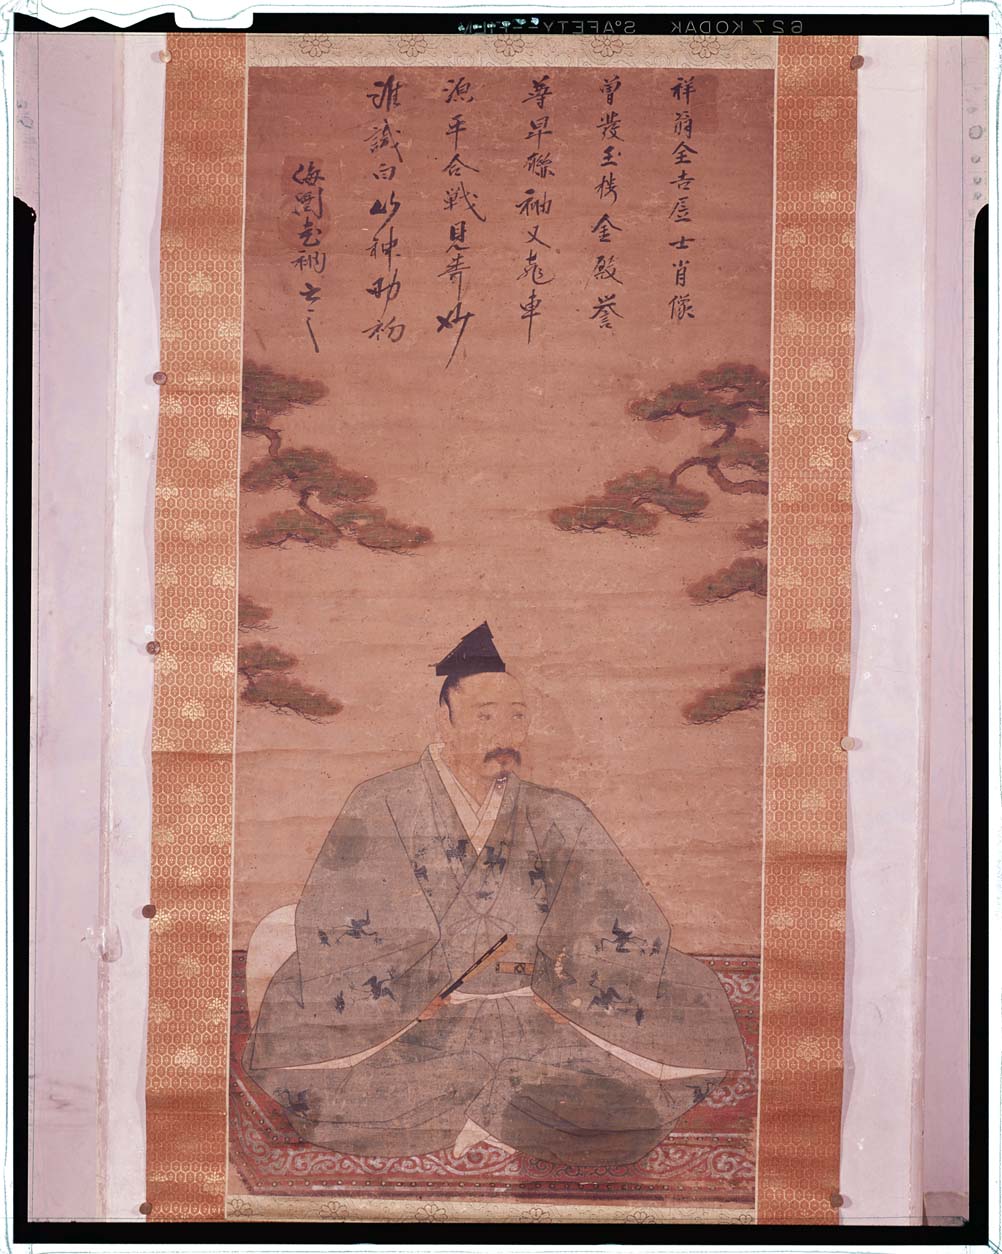 祥翁全吉居士肖像
曾發玉樓金殿誉
尊卑聯袖又飛車
源平合戦見奇妙
誰識白山神助初
海闉老衲書之
627 KODAK SAFETY FILM